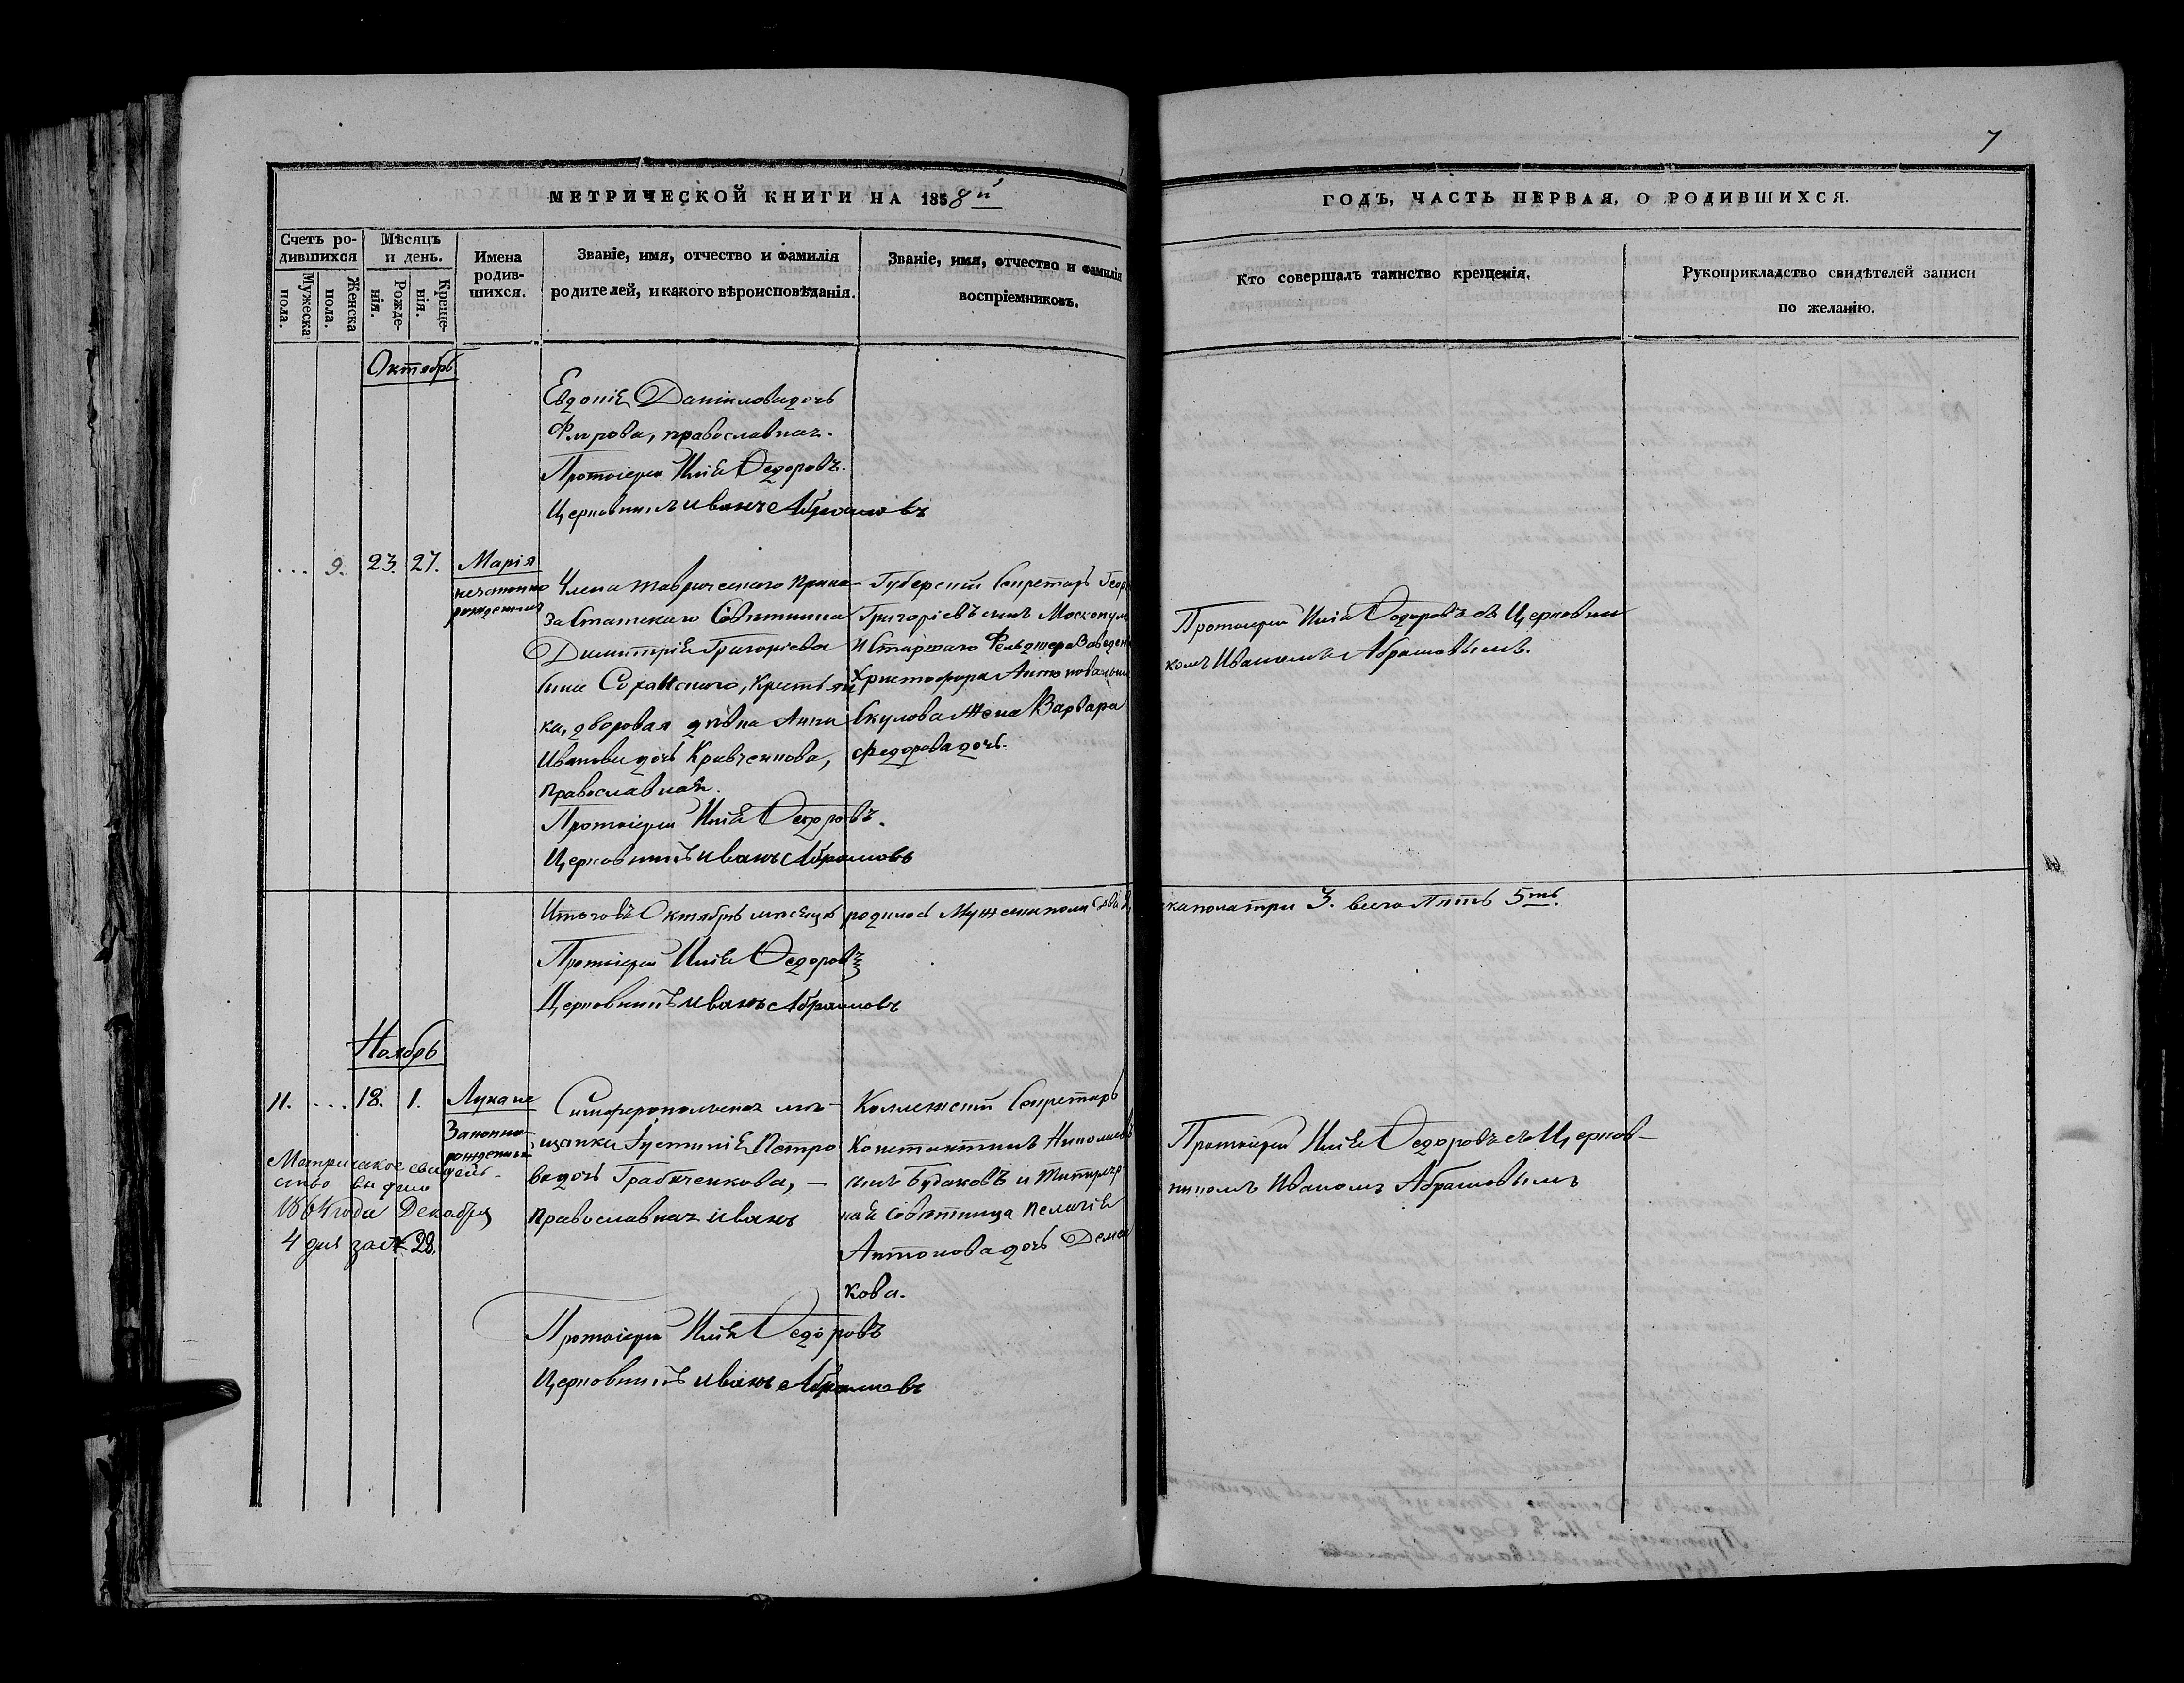 7
МЕТРИЧЕСКОЙ КНИГИ НА 1858й
ГОДЪ, ЧАСТЬ ПЕРВАЯ, О РОДИВШИХСЯ.
Счетъ ро-
дившихся
Мужеска
пола.
Женска
пола.
Мѣсяцъ
и день.
Рожде-
нія.
Креще-
нія.
Имена
родив-
шихся.
Званіе, имя, отчество и фамилія
родителей, и какого вѣроисповѣданія.
Званіе, имя, отчество и фамилія
воспріемниковъ.
Кто совершалъ таинство крещенія.
Рукоприкладство свидѣтелей записи
по желанію.
Октябрь
Даниловадочь
православная.
Протоіерей Илія Ѳедоровъ.
Церковникъ Иванъ Абрамовъ
... 9. 23. 27. Марія
незаконно
рожденная
Члена Таврическаго Прика-
за Статскаго Совѣтника
Димитрія Григоріева
сына Крестьян
ка, дворовая дѣвка Анна
Иванова дочь Кравченкова,
православная.
Протоіерей Илія Ѳедоровъ.
Церковникъ Иванъ Абрамовъ
Губерскій Секретарь Геор
Григоріевъ сынъ
и Старшаго Фельдшера Заведен
Христофора Антонова сына
Скулова Жена Варвара
Федорова дочь.
Протоіерей Илія Ѳедоровъ съ Церковни
комъ Иваномъ Абрамовымъ.
Итого въ Октябрѣ мѣсяцѣ родилось Мужеска пола два 2,
ска пола три 3. всего Пять 5ть.
Протоіерей Илія Ѳедоровъ
Церковникъ Иванъ Абрамовъ
Ноябрь
11. ... 18. 1. Лука
Законно-
рожденный
Метрическое свидѣтель-
ство выдано
1864 года Декабря
4 дня за № 28.
Симферопольская мѣ-
щанка Іустинія Петро
ва дочь
православная Иванъ
Коллежскій Секретарь
Константинъ Николаевъ
сынъ Будаковъ и Титуляр-
ная Совѣтница Пелагія
Антонова дочь
кова.
Протоіерей Илія Ѳедоровъ съ Церков-
никомъ Иваномъ Абрамовымъ
Протоіерей Илія Ѳедоровъ
Церковникъ Иванъ Абрамовъ